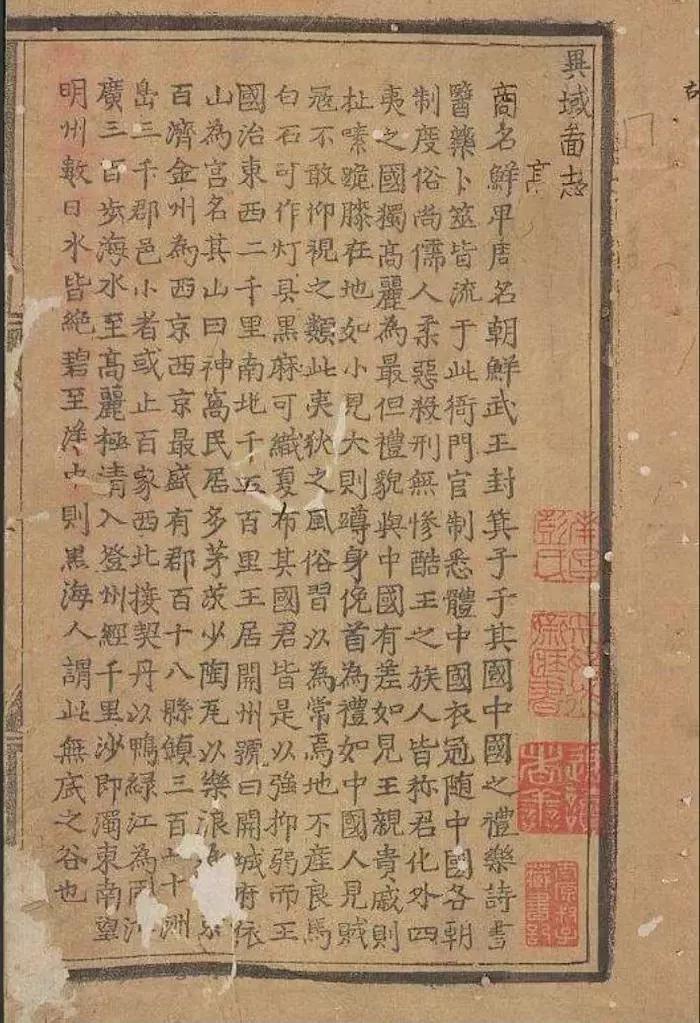 異域畵志
高
商名鮮卑周名朝鮮武王封箕子于其國中國之禮樂詩書
醫藥卜筮皆流于此衙門官制悉體中國衣冠隨中國各朝
制度俗尚儒人柔惡殺刑無慘酷王之族人皆称君化外四
夷之國獨高麗為最但禮貌與中國有差如見王親貴戚則
扯嗉跪膝在地如小見大則蹲身俛首為禮如中國人見賊
冦不敢仰視之𩔖此夷狄之風俗習以為常焉地不產良馬
白石可作灯具黒麻可織夏布其國君皆是以強抑弱而王
國治東西二千里南北千五百里王居開州號曰開城府依
山為宮名其山曰神窩民居多茅茨少陶瓦以樂浪
百濟金州為西京西京最盛有郡百十八縣鎮三百十洲
島三千郡邑小者或止百家西北接契丹以鴨緑江為
廣三百步海水至高麗極清入登州經千里沙即濁東南望
明州數日水皆絶碧至洋中則黒海人謂此無底之谷也